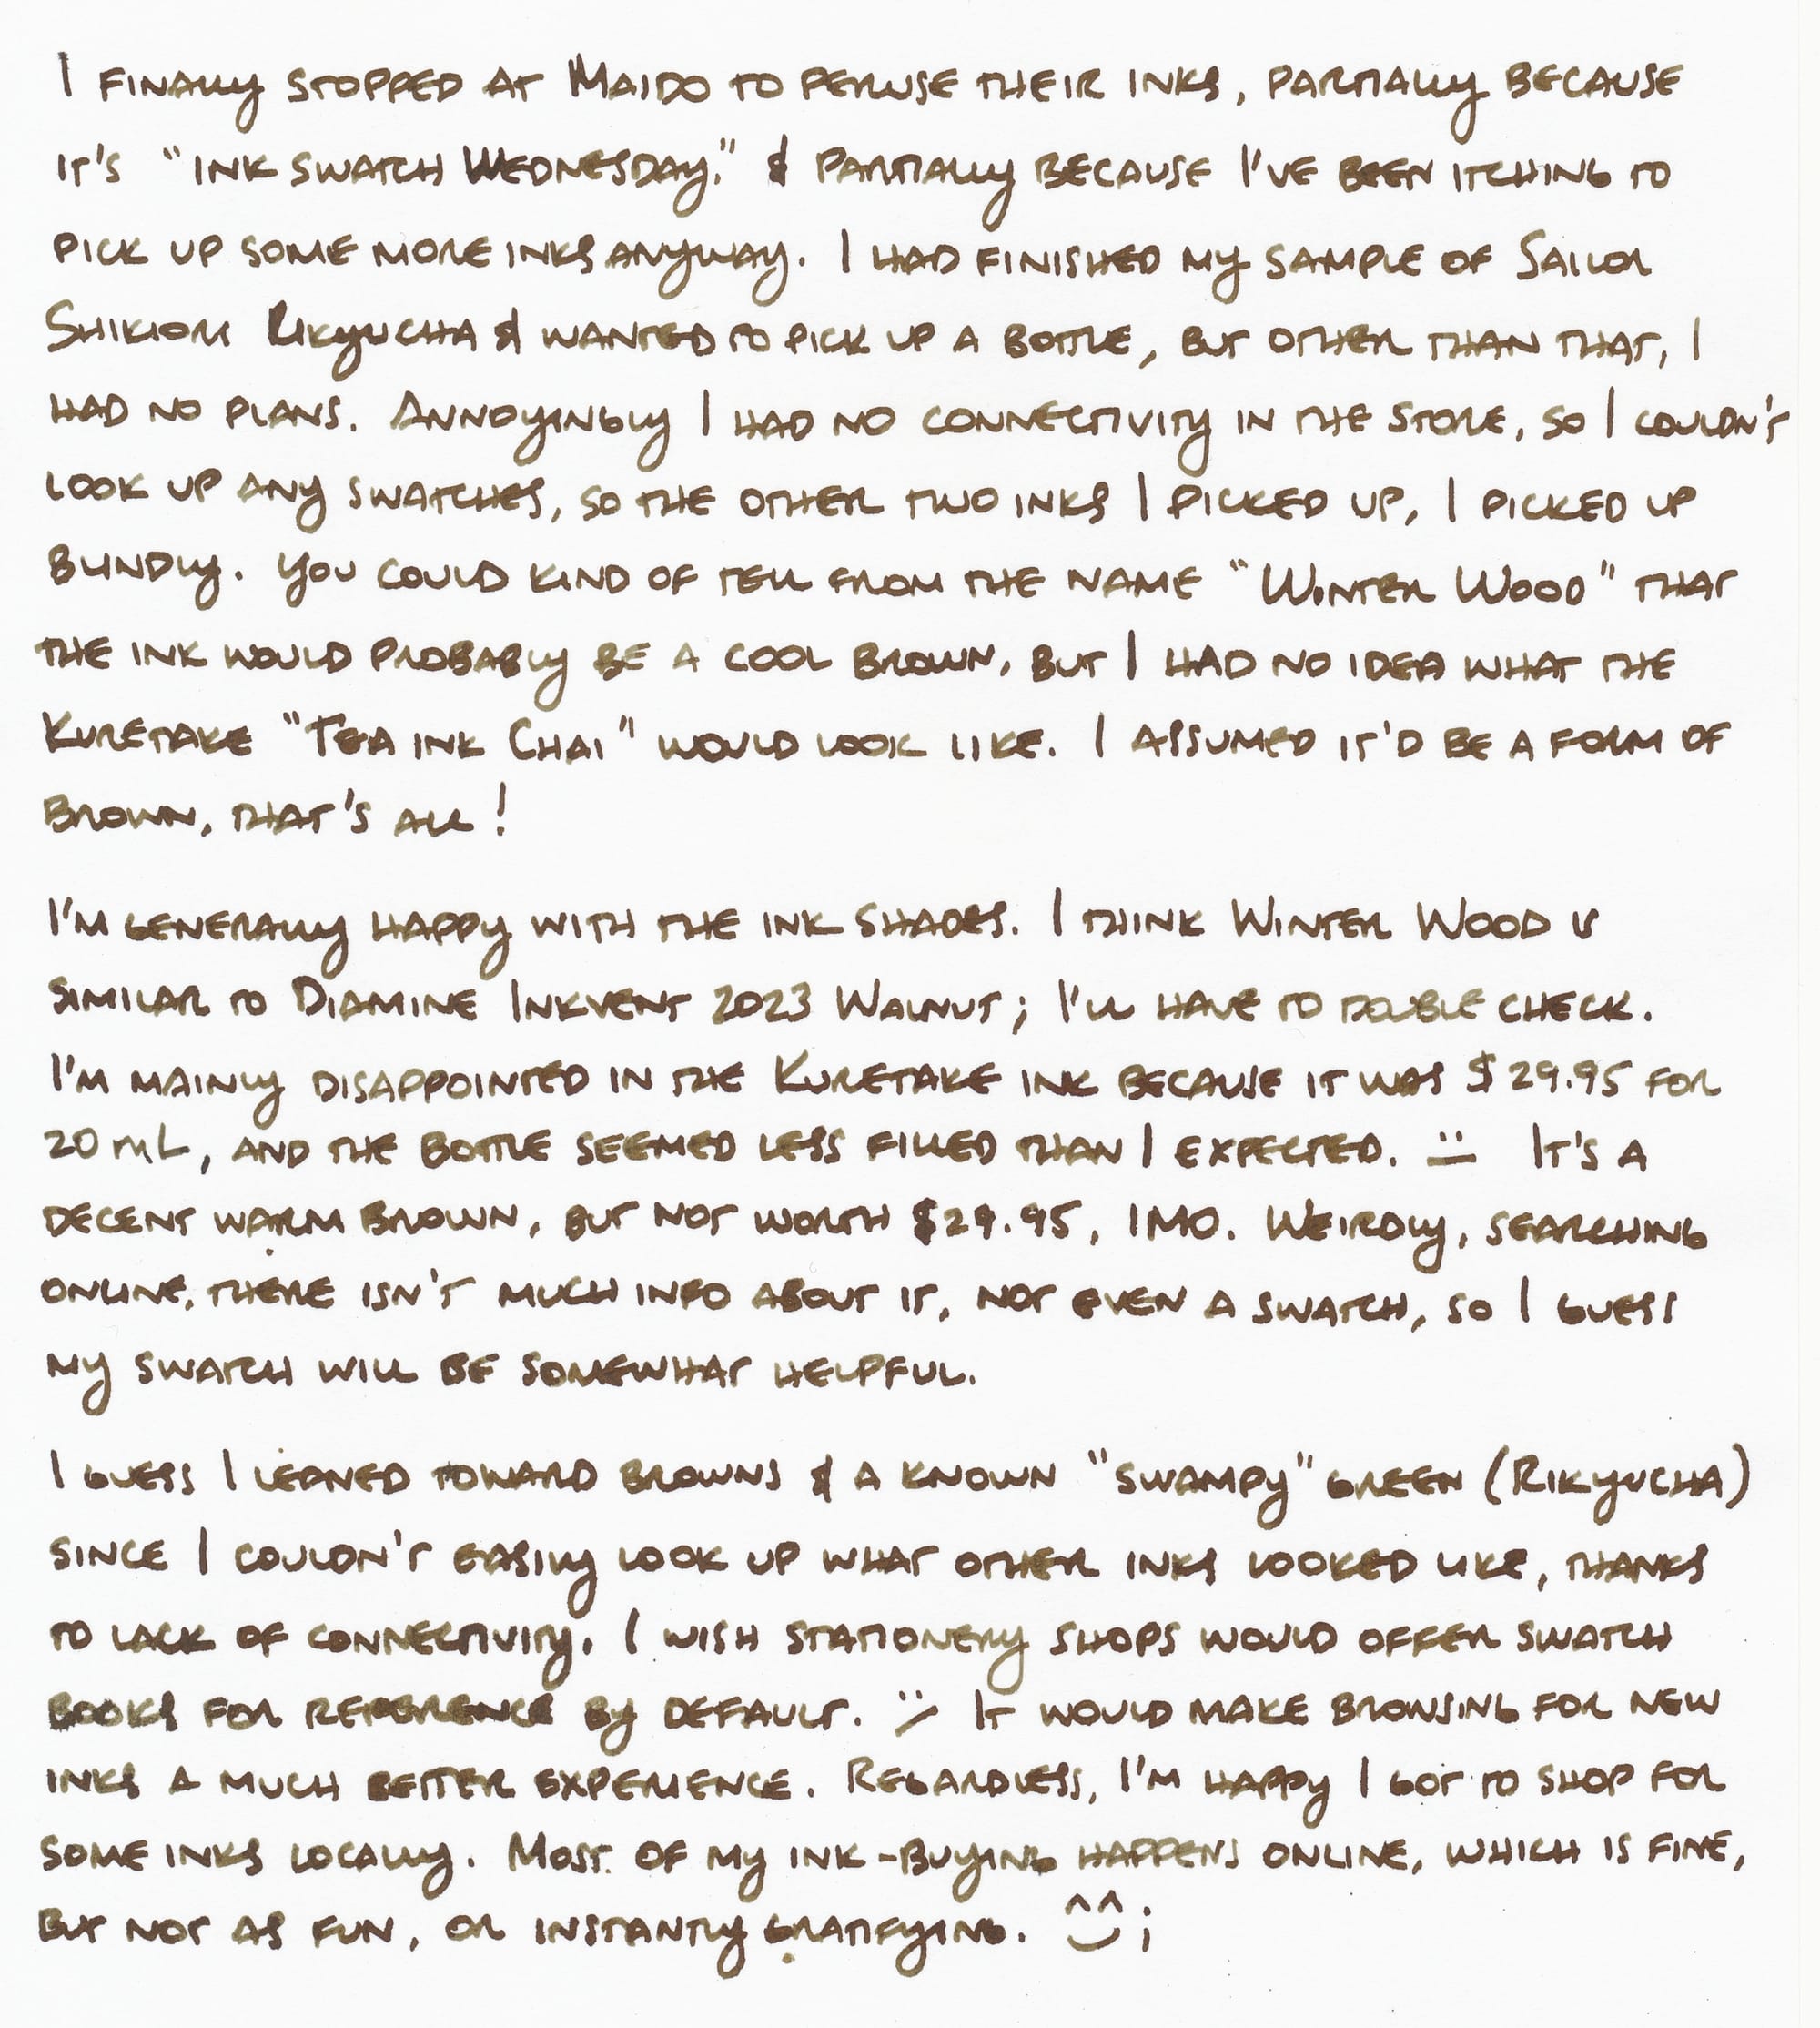 I finally stopped at Maido to peruse their inks, partially because
it's "Ink Swatch Wednesday," & partially because I've been itching to
pick up some more inks anyway. I had finished my sample of Sailor
Shikiori Rikyucha & wanted to pick up a bottle, but other than that, I
had no plans. Annoyingly I had no connectivity in the store, so I couldn't
look up any swatches, so the other two inks I picked up, I picked up
blindly. You could kind of tell from the name "Winter Wood" that
the ink would probably be a cool brown, but I had no idea what the
Kuretake "Tea Ink Chai" would look like. I assumed it'd be a form of
brown, that's all!
I'm generally happy with the ink shades. I think Winter Wood is
similar to Diamine Inkvent 2023 Walnut; I'll have to double check.
I'm mainly disappointed in the Kuretake ink because it was $29.95 for
20 mL, and the bottle seemed less filled than I expected. :| It's a
decent warm brown, but not worth $29.95, IMO. Weirdly, searching
online, there isn't much info about it, not even a swatch, so I guess
my swatch will be somewhat helpful.
I guess I leaned toward browns & a known "swampy" green (Rikyucha)
since I couldn't easily look up what other inks looked like, thanks
to lack of connectivity. I wish stationery shops would offer swatch
books for reference by default. :/ It would make browsing for new
inks a much better experience. Regardless, I'm happy I got to shop for
some inks locally. Most of my ink-buying happens online, which is fine,
but not as fun, or instantly gratifying. ^‿^;